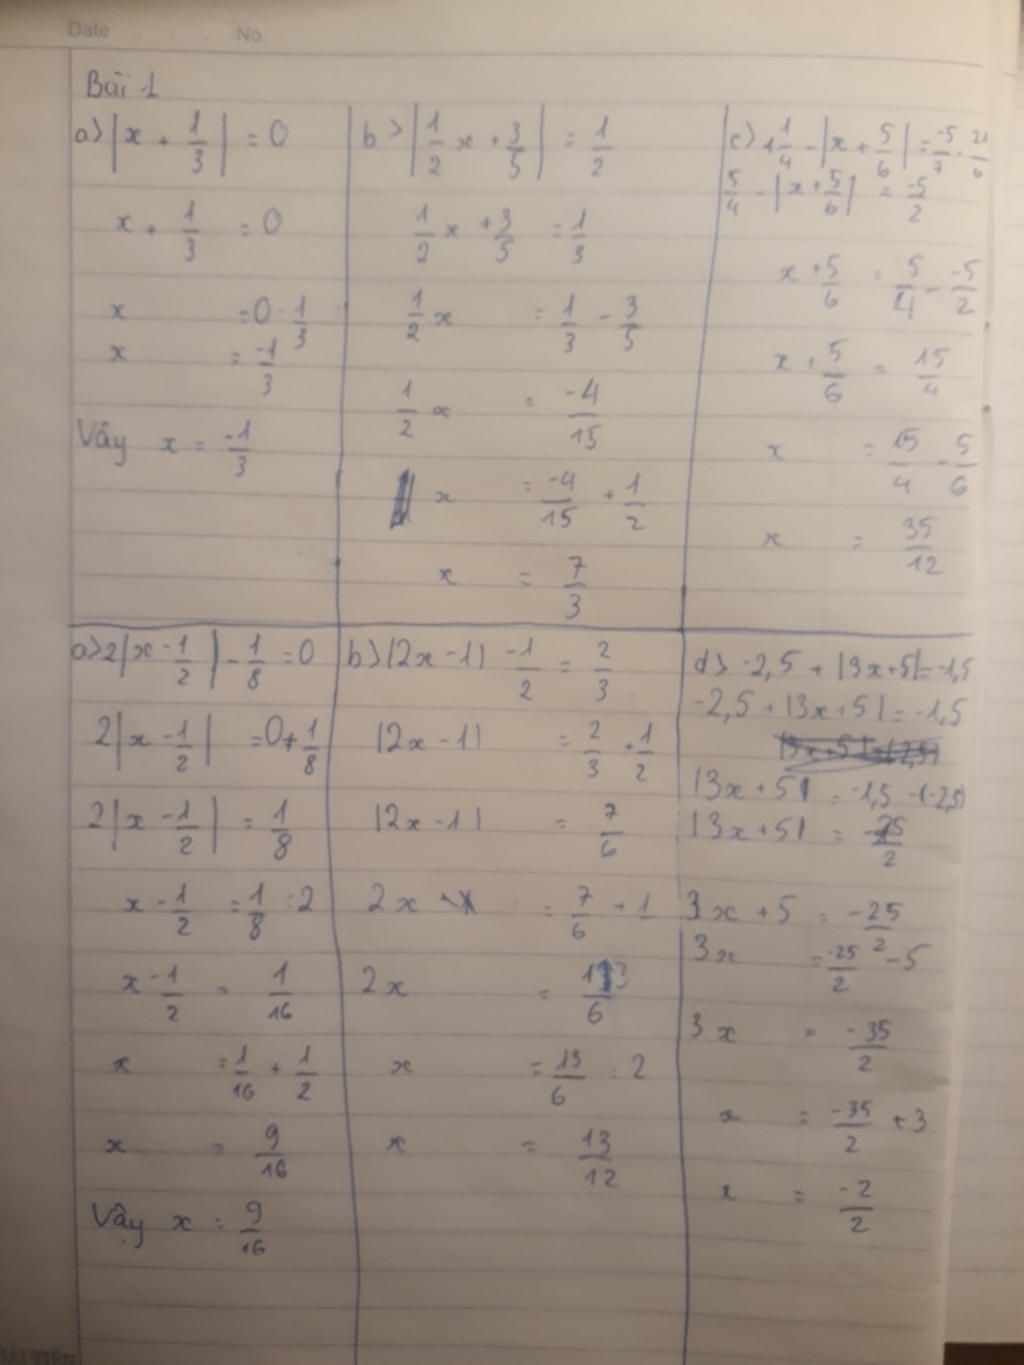 Date No
Bài 1
a> |x + 1/3| = 0
x + 1/3 = 0
x = 0 - 1/3
x = -1/3
Vây x = -1/3
b> |1/2 x + 3/5| = 1/2
1/2 x + 3/5 = 1/3
1/2 x = 1/3 - 3/5
1/2 x = -4/15
x = -4/15 + 1/2
x = 7/3
c> 1 1/4 - |x + 5/6| = -5/7 . 21/6
5/4 - |x + 5/6| = -5/2
x + 5/6 = 5/4 - -5/2
x + 5/6 = 15/4
x = 15/4 - 5/6
x = 35/12
a> 2|x - 1/2| - 1/8 = 0
2|x - 1/2| = 0 + 1/8
2|x - 1/2| = 1/8
x - 1/2 = 1/8 : 2
x - 1/2 = 1/16
x = 1/16 + 1/2
x = 9/16
Vậy x = 9/16
b> |2x - 1| - 1/2 = 2/3
|2x - 1| = 2/3 + 1/2
|2x - 1| = 7/6
2x = 7/6 + 1
2x = 13/6
x = 13/6 : 2
x = 13/12
d> -2,5 + |3x + 5| = -1,5
-2,5 + |3x + 5| = -1,5
|3x + 5| = -1,5 - (-2,5)
|3x + 5| = -25/2
3x + 5 = -25/2
3x = -25/2 - 5
3x = -35/2
x = -35/2 + 3
x = -2/2